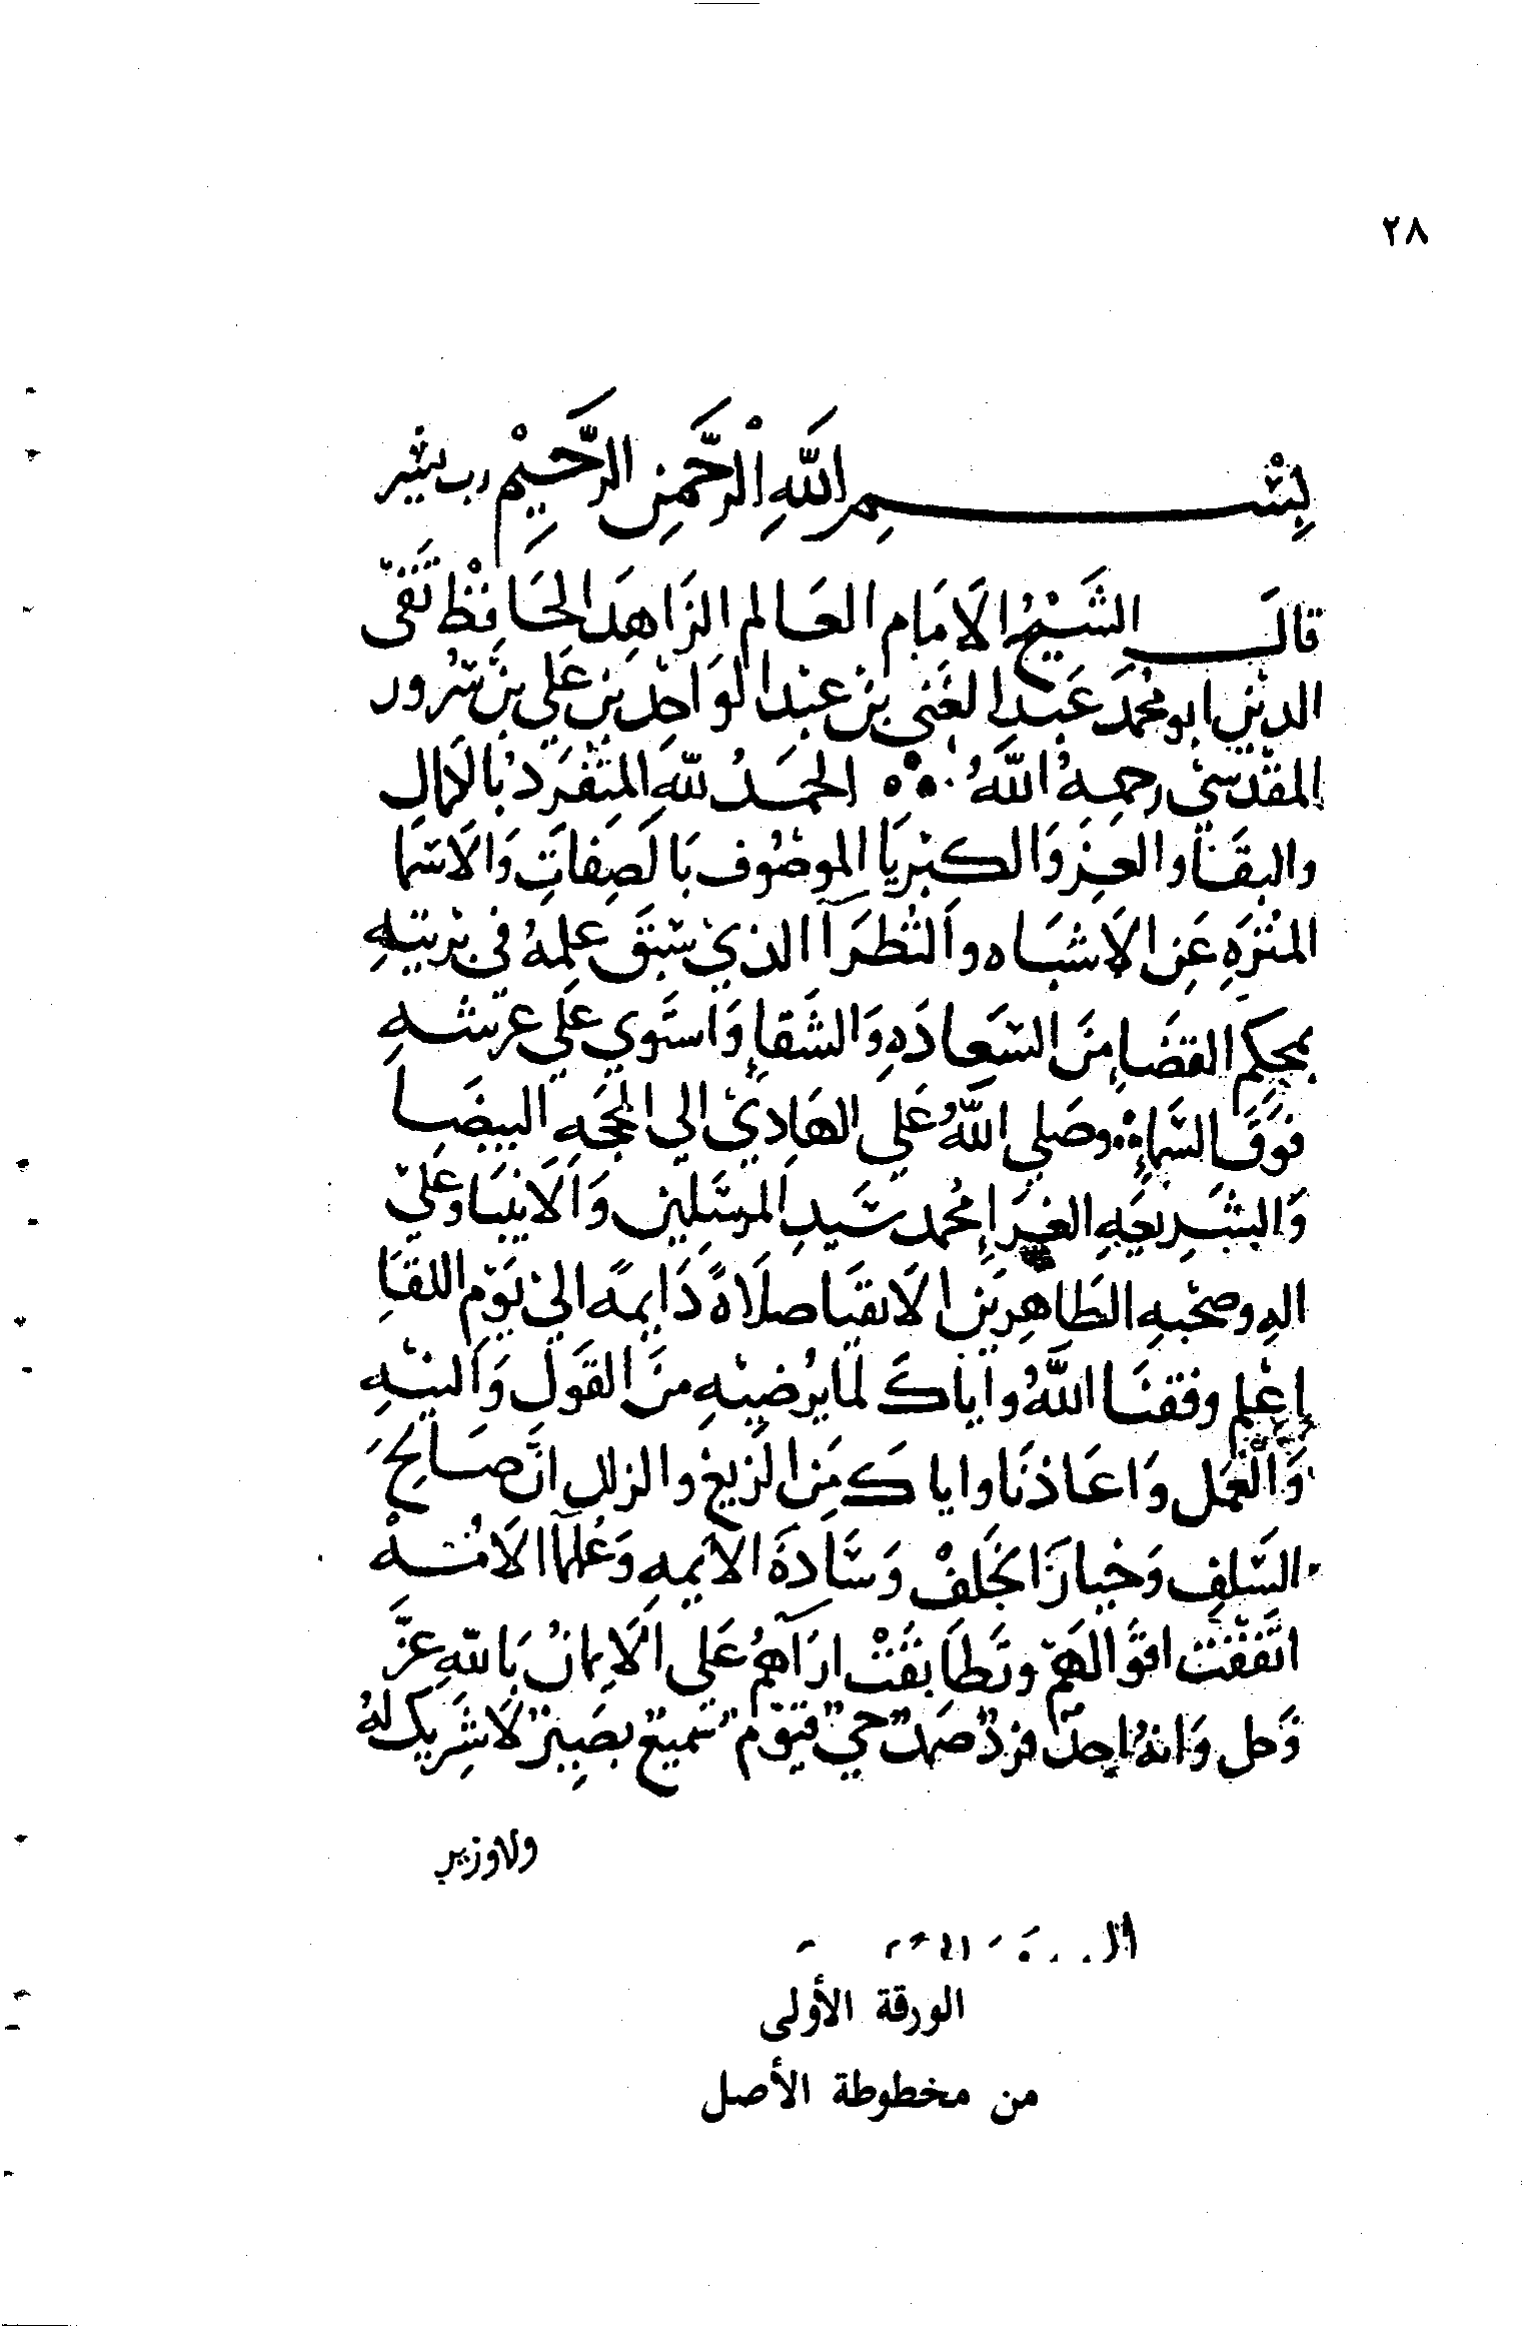 ٢٨
بِسْمِ اللَّهِ الرَّحْمَنِ الرَّحِيْمِ رب يسر
قالَ الشَيْخُ الامَام العَالم الزَاهِدَ الحَافِظْ تَقَى
الدين ابو محُمدَ عَبد الغَني بن عبْد الوَاحِد بن عَلي بن سُرور
المقْدسي رحمهُ اللَّهُ الحمَدُ للهِ المتفَرَد بُالكمالِ
والبقَا والعِز وَالكبْريَا الموصُوف بَالصِفاتِ وَالاسَما
المنُزَهِ عَن الاشبَاه والنُظرَآ الذي سَبَقَ عِلمهُ في بَريَتهِ
بمحِكم القضَاءِ مَن السَعادَهِ وَالشَقاءِ وَاستَوي عَلي عَرشهِ
فوَقَ السَماءِ وصَلي اللَّهُ عَلي الهَادِيْ الي المحَجَهِ البيضَا
وَالشَريعَهِ الغَرَاءِ محُمد سَيدِ المرسَلين وَالاَنبيَا وعَليْ
الهِ وصَحْبهِ الطَاهِريَن الاَتقيَا صلَاةً دَايمَه الي يَوَم اللقَاءِ
إعْلم وفقنَا اللَّهُ وأياكَ لما يُرضيْهِ منَ القَول وَالنيَهِ
وَالعَمل وَاعَاذنَا واياكَ مَن الزَيغ والزلل انَّ صَالحَ
السَلفِ وَخيارَ الخَلفْ وَسَادَةَ الايمهِ وَعُلمآ الاَمُهْ
اتَفقْت اقَوالهَم وتَطَابقَتْ ارَآهمُ عَلي الاَيمانُ بَاللهِ عزَّ
وَجل وَانهُ احدٌ فردٌ صَمدٌ حيٌ قيوَمٌ سَميعٌ بصَيِرٌ لاَ شَريك لهُ
ولا وزير
الورقة الأولى
من مخطوطة الأصل